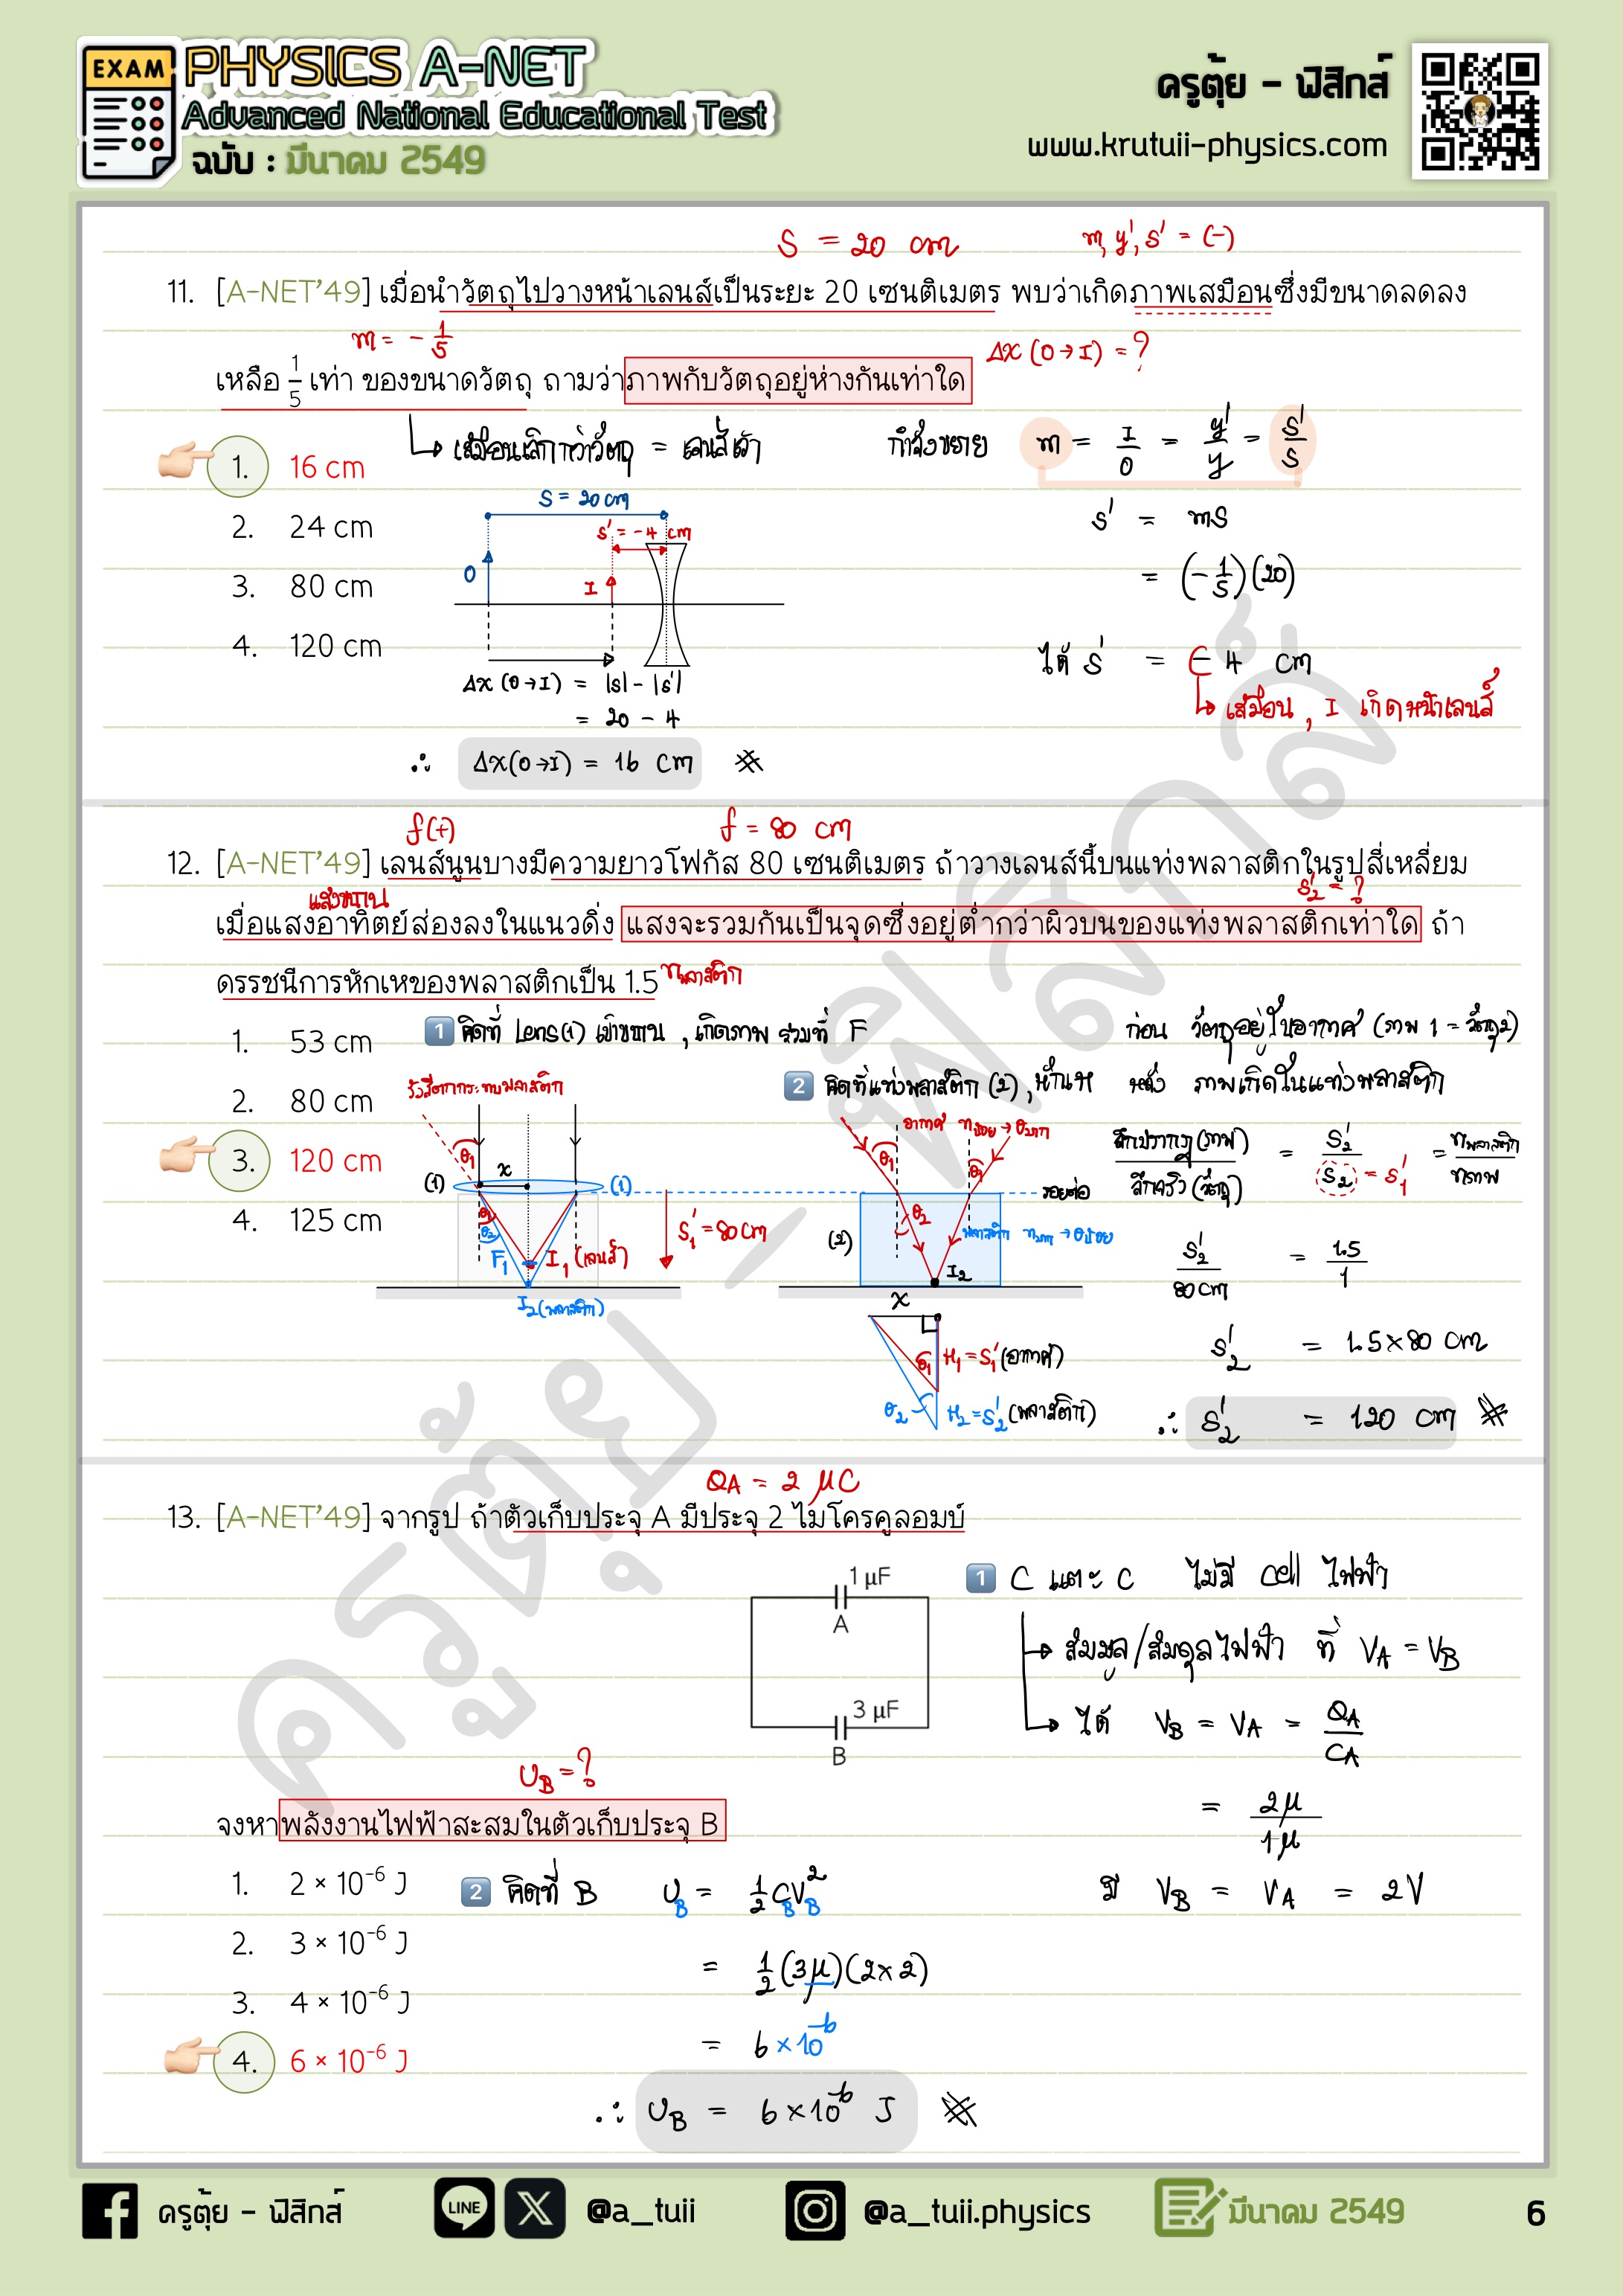 EXAM
PHYSICS A-NET
Advanced National Educational Test
ฉบับ : มีนาคม 2549
ครูตุ้ย - ฟิสิกส์
www.krutuii-physics.com
S = 20 cm
m, y', s' = (-)
11. [A-NET'49] เมื่อนำวัตถุไปวางหน้าเลนส์เป็นระยะ 20 เซนติเมตร พบว่าเกิดภาพเสมือนซึ่งมีขนาดลดลง
m = - 1/5
Δx (O→I) = ?
เหลือ 1/5 เท่า ของขนาดวัตถุ ถามว่าภาพกับวัตถุอยู่ห่างกันเท่าใด
เสมือนเล็กกว่าวัตถุ = เลนส์เว้า
กำลังขยาย m = I/O = y'/y = s'/s
1. 16 cm
2. 24 cm
3. 80 cm
4. 120 cm
S = 20 cm
s' = -4 cm
O
I
Δx (O→I) = |s| - |s'|
= 20 - 4
∴ Δx(O→I) = 16 cm
s' = ms
= (-1/5)(20)
ได้ s' = - 4 cm
เสมือน, I เกิดหน้าเลนส์
f(+)
f = 80 cm
12. [A-NET'49] เลนส์นูนบางมีความยาวโฟกัส 80 เซนติเมตร ถ้าวางเลนส์นี้บนแท่งพลาสติกในรูปสี่เหลี่ยม
แสงขนาน
s'2 = ?
เมื่อแสงอาทิตย์ส่องลงในแนวดิ่ง แสงจะรวมกันเป็นจุดซึ่งอยู่ต่ำกว่าผิวบนของแท่งพลาสติกเท่าใด ถ้า
ดรรชนีการหักเหของพลาสติกเป็น 1.5
nพลาสติก
1. 53 cm
2. 80 cm
3. 120 cm
4. 125 cm
1 คิดที่ Lens(1) เข้าขนาน, เกิดภาพ ร่วมที่ F
รังสีตกกระทบพลาสติก
θ1
x
(1)
(1)
θ1
θ2
F1
I1 (เลนส์)
I2 (พลาสติก)
s'1 = 80 cm
2 คิดที่แท่งพลาสติก (2), หักเห
ก่อน วัตถุอยู่ในอากาศ (ภาพ 1 = วัตถุ2)
หลัง ภาพเกิดในแท่งพลาสติก
อากาศ nน้อย → θมาก
θ1
θ1
รอยต่อ
θ2
พลาสติก nมาก → θน้อย
(2)
I2
x
θ1
H1 = s'1 (อากาศ)
θ2
H2 = s'2 (พลาสติก)
ลึกปรากฏ (ภาพ)/ลึกจริง (วัตถุ) = s'2/s2 = s'1 = nพลาสติก/nภาพ
s'2/80 cm = 1.5/1
s'2 = 1.5×80 cm
∴ s'2 = 120 cm
QA = 2 μC
13. [A-NET'49] จากรูป ถ้าตัวเก็บประจุ A มีประจุ 2 ไมโครคูลอมบ์
1 μF
A
3 μF
B
1 C แตะ C ไม่มี cell ไฟฟ้า
สมมูล/สมดุลไฟฟ้า ที่ VA = VB
ได้ VB = VA = QA/CA
= 2μ/1μ
มี VB = VA = 2V
UB = ?
จงหาพลังงานไฟฟ้าสะสมในตัวเก็บประจุ B
1. 2 × 10⁻⁶ J
2. 3 × 10⁻⁶ J
3. 4 × 10⁻⁶ J
4. 6 × 10⁻⁶ J
2 คิดที่ B UB = 1/2 CBVB²
= 1/2 (3μ)(2×2)
= 6 ×10⁻⁶
∴ UB = 6×10⁻⁶ J
ครูตุ้ย - ฟิสิกส์
ครูตุ้ย - ฟิสิกส์
LINE
@a_tuii
@a_tuii.physics
มีนาคม 2549
6